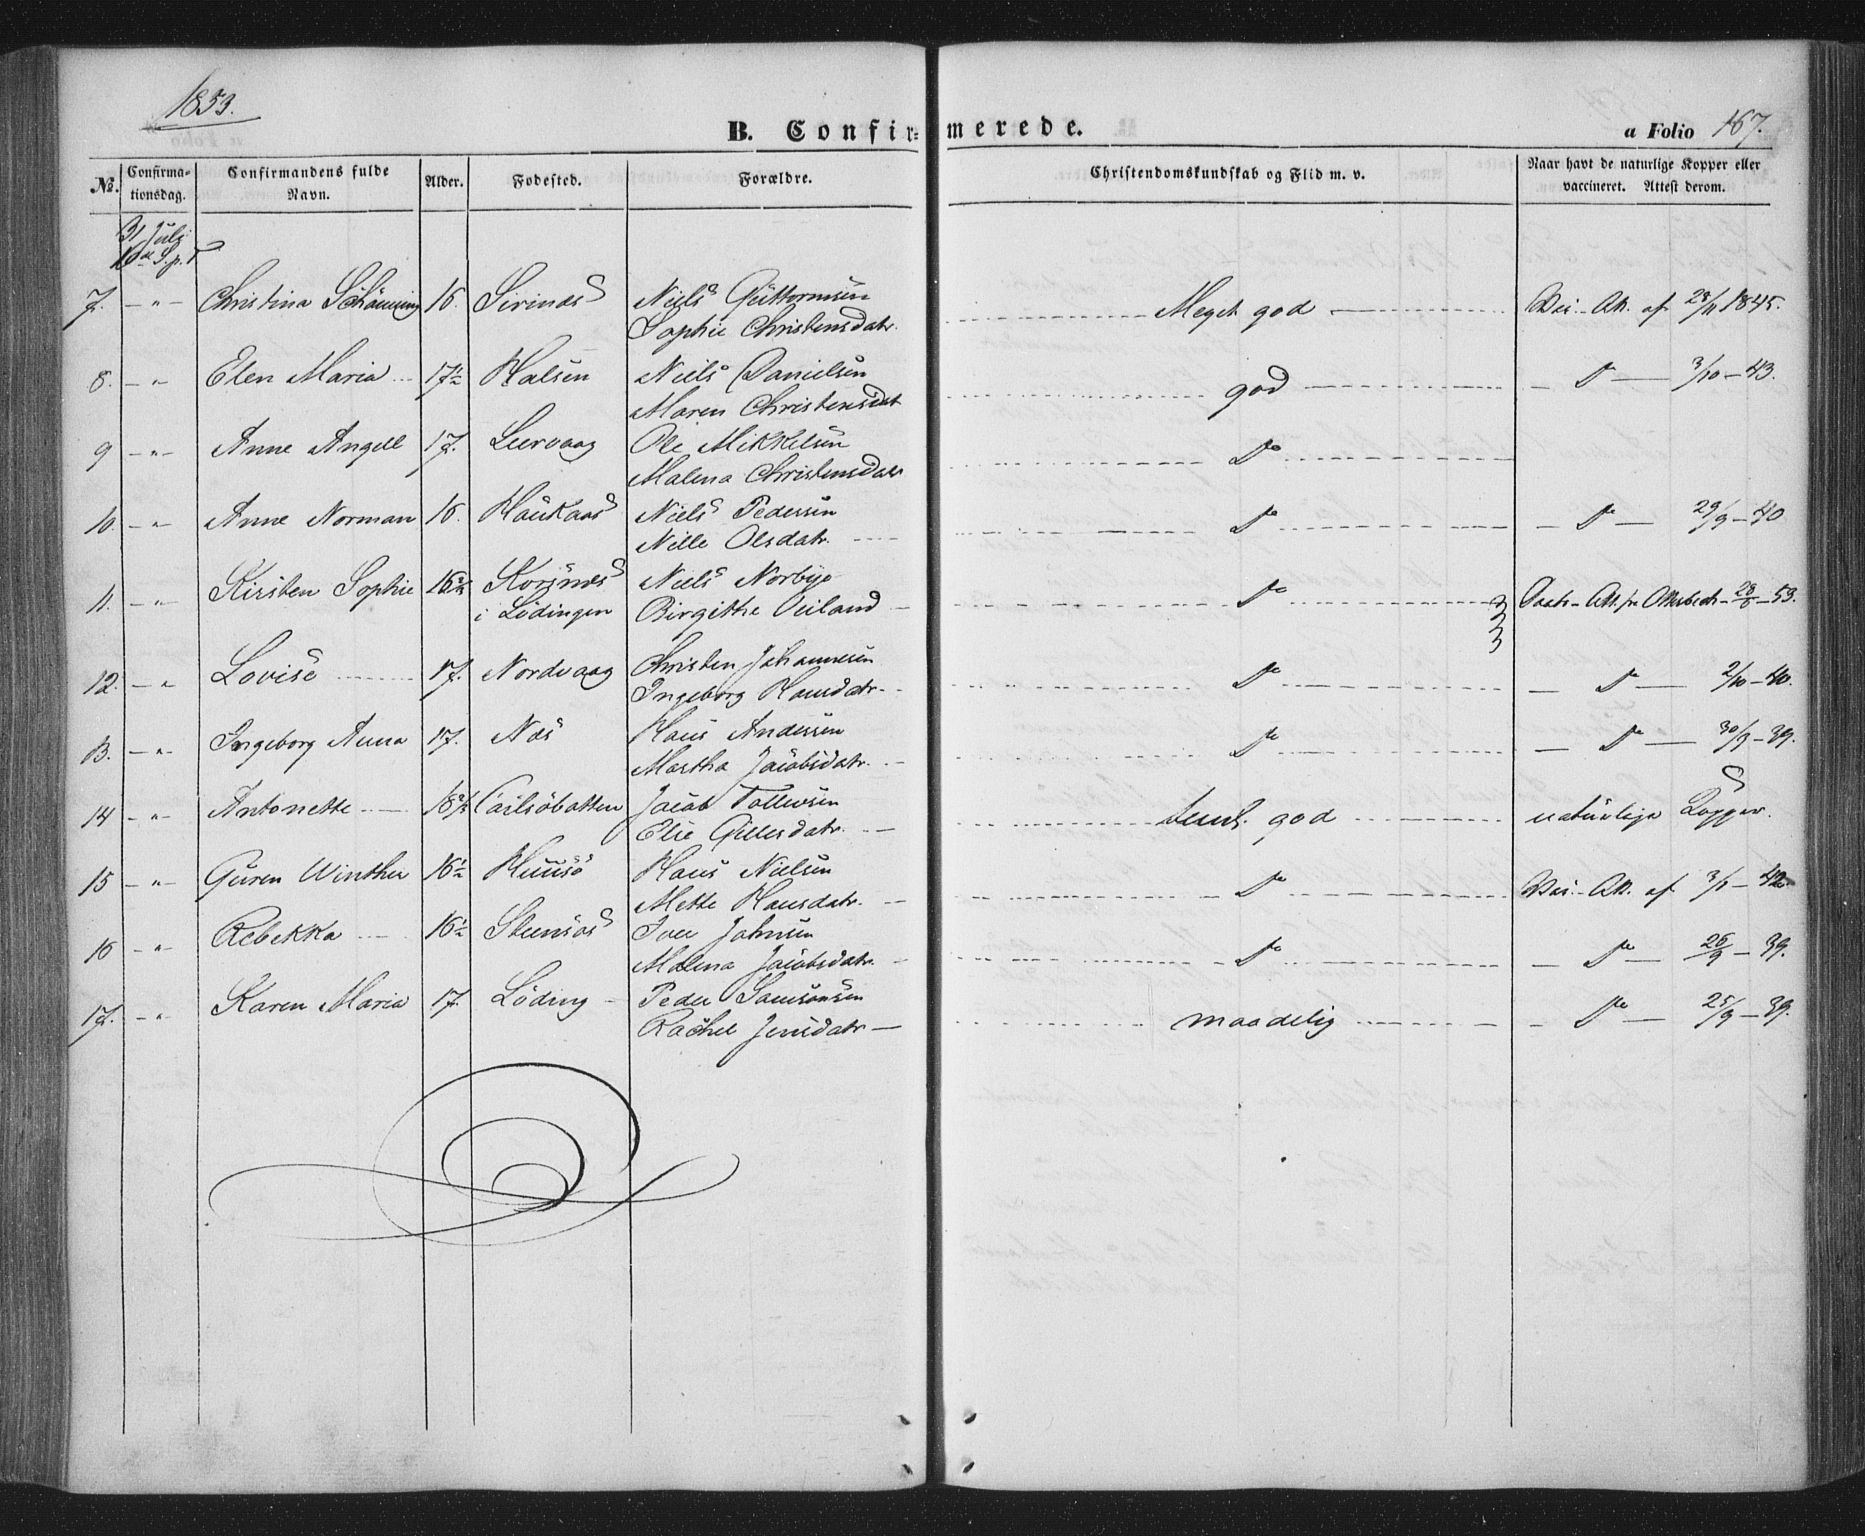 1853.
B. Confirmerede.
a Folio 167.
No. Confirmationsdag. Confirmandens fulde Navn. Alder. Fødested. Forældre. Christendomskundskab og Flid m. v. Naar havt de naturlige Kopper eller vaccineret. Attest derom.
31 Juli
10de S. p. T
7. -"- Christina Schåning 16. Sirinæs Niels Guttormsen Meget god Vac. Att. af 28/11 1845.
Sophie Christensdatr.
8. -"- Elen Maria 17½ Halsen Niels Danielsen god - Do - 3/10 - 43.
Maren Christensdat
9 -"- Anne Angell 17. Leervaag Ole Mikkelsen Do
Malena Christensdatr
10. -"- Anne Norman 16. Haukaas Niels Pedersen Do - Do - 29/9 - 40
Nille Olsdatr.
11. -"- Kirsten Sophie 16 Korsnæs Niels Norbye Do Att. fra 28/6 - 53.
i Lødingen Birgithe Veiland
12. -"- Lovise 17. Nordvaag Christen Johannesen Do - Do - 2/10 - 40.
Ingeborg Hansdatr.
13. -"- Ingeborg Anna 17. Næs Hans Andersen Do - Do - 30/9 - 39.
Martha Jacobsdatr.
14 -"- Antonette 18 Jacob Tollevsen temml. god naturlige Kopper.
Else Gillesdatr.
15 -"- Guren Winther 16½ Huusø Hans Nielsen Do Vac. Att. af 3/1 - 42
Mette Hansdatr.
16 -"- Rebekka 16½ Steensøs Iver Johnsen Do - Do - 26/9 - 39.
Malena Jacobsdatr.
17. -"- Karen Maria 17. Løding Peder Samsonsen maadelig - Do - 25/9 - 39.
Rachel Jensdatr